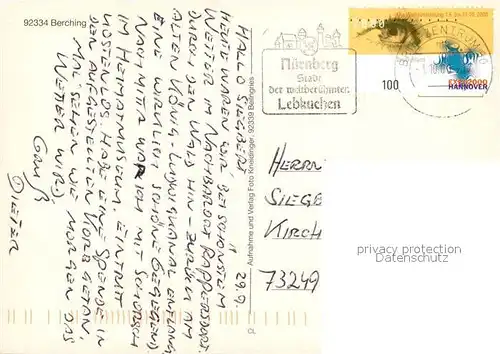 92334 Berching
HALLO SIEGBERT! 29.9.
HEUTE WAREN WIR BEI SCHÖNSTEM
WETTER IM NACHBARDORF RAPPERSDORF.
DURCH DEN WALD HIN - ZURÜCK AM
ALTEN KÖNIG-LUDWIGKANAL ENTLANG
EINE WIRKLICH SCHÖNE GEGEND,
NACHMITT WAR ICH MIT SCHORSCH
IM HEIMATMUSEUM. EINTRITT
KOSTENLOS, HABE EINE SPENDE IN
DEN AUFGESTELLTEN KORB GETAN.
MAL SEHEN WIE MORGEN DAS
WETTER WIRD,
Gruß
DIETER
Aufnahme und Verlag Foto Kreisinger, 92339 Beilngries
Nürnberg
Stadt
der weltberühmten
Lebkuchen
BRIEFZENTRUM
100
EXPO2000
HANNOVER
HERRN
SIEGB
KIRCH
73249
privacy protection
Datenschutz